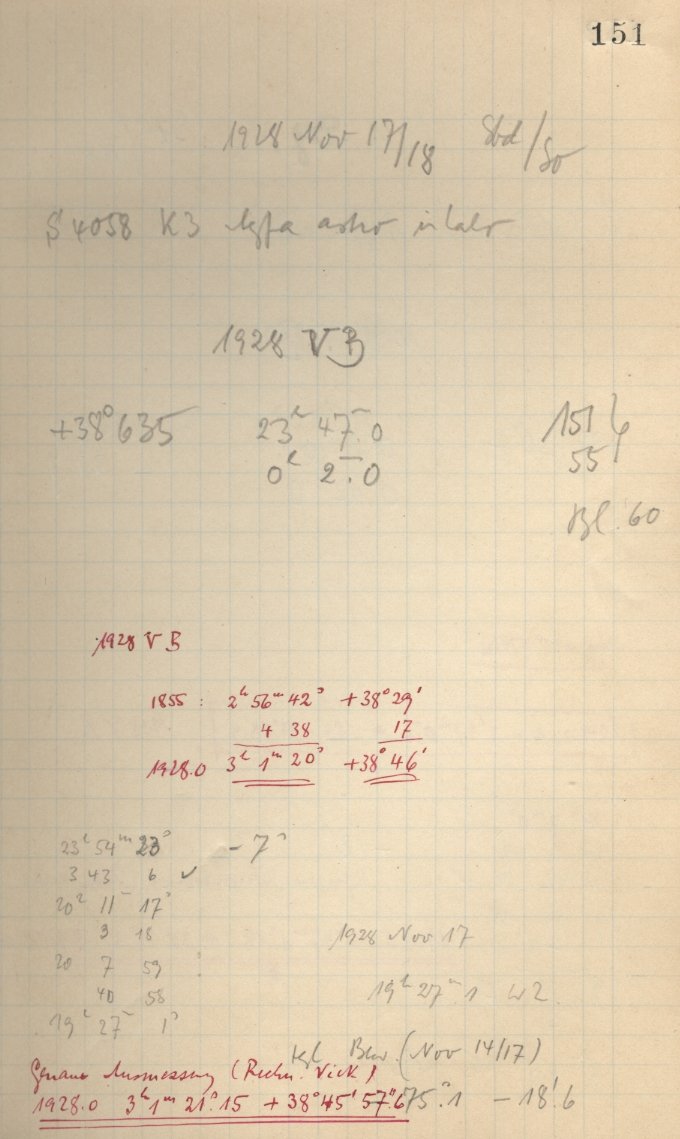 151
1928 Nov 17/18 Sbd/So
S 4058 K3 Agfa astro
1928 VB
+38° 635 23h 47m.0 151
0h 2m.0 55
Bl. 60
1928 VB
1855 : 2h 56m 42s +38° 29'
4 38 17
1928.0 3h 1m 20s +38° 46'
23h 54m 23s - 7s
3 43 6 ✓
20h 11m 17s
3 18
20 7 59 :
1928 Nov 17
40 58
19h 27m.1 WZ.
19h 27m 1s
tgl. Bew. (Nov 14/17)
Genaue Ausmessung (Rechn. Vick)
1928.0 3h 1m 21s.15 +38° 45' 57".6 75s.1 - 18'.6